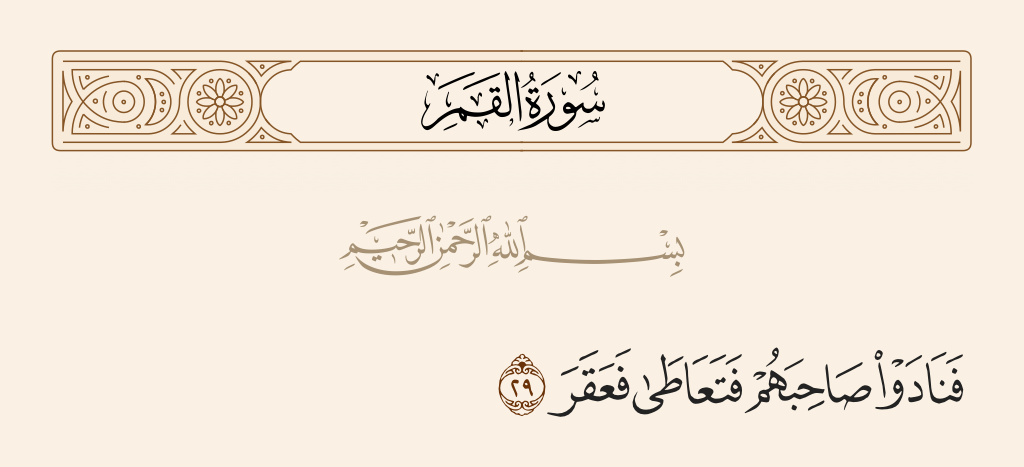 سُورَةُ القَمَرِ
بِسْمِ ٱللَّهِ ٱلرَّحْمَٰنِ ٱلرَّحِيمِ
فَنَادَوْا۟ صَاحِبَهُمْ فَتَعَاطَىٰ فَعَقَرَ ٢٩